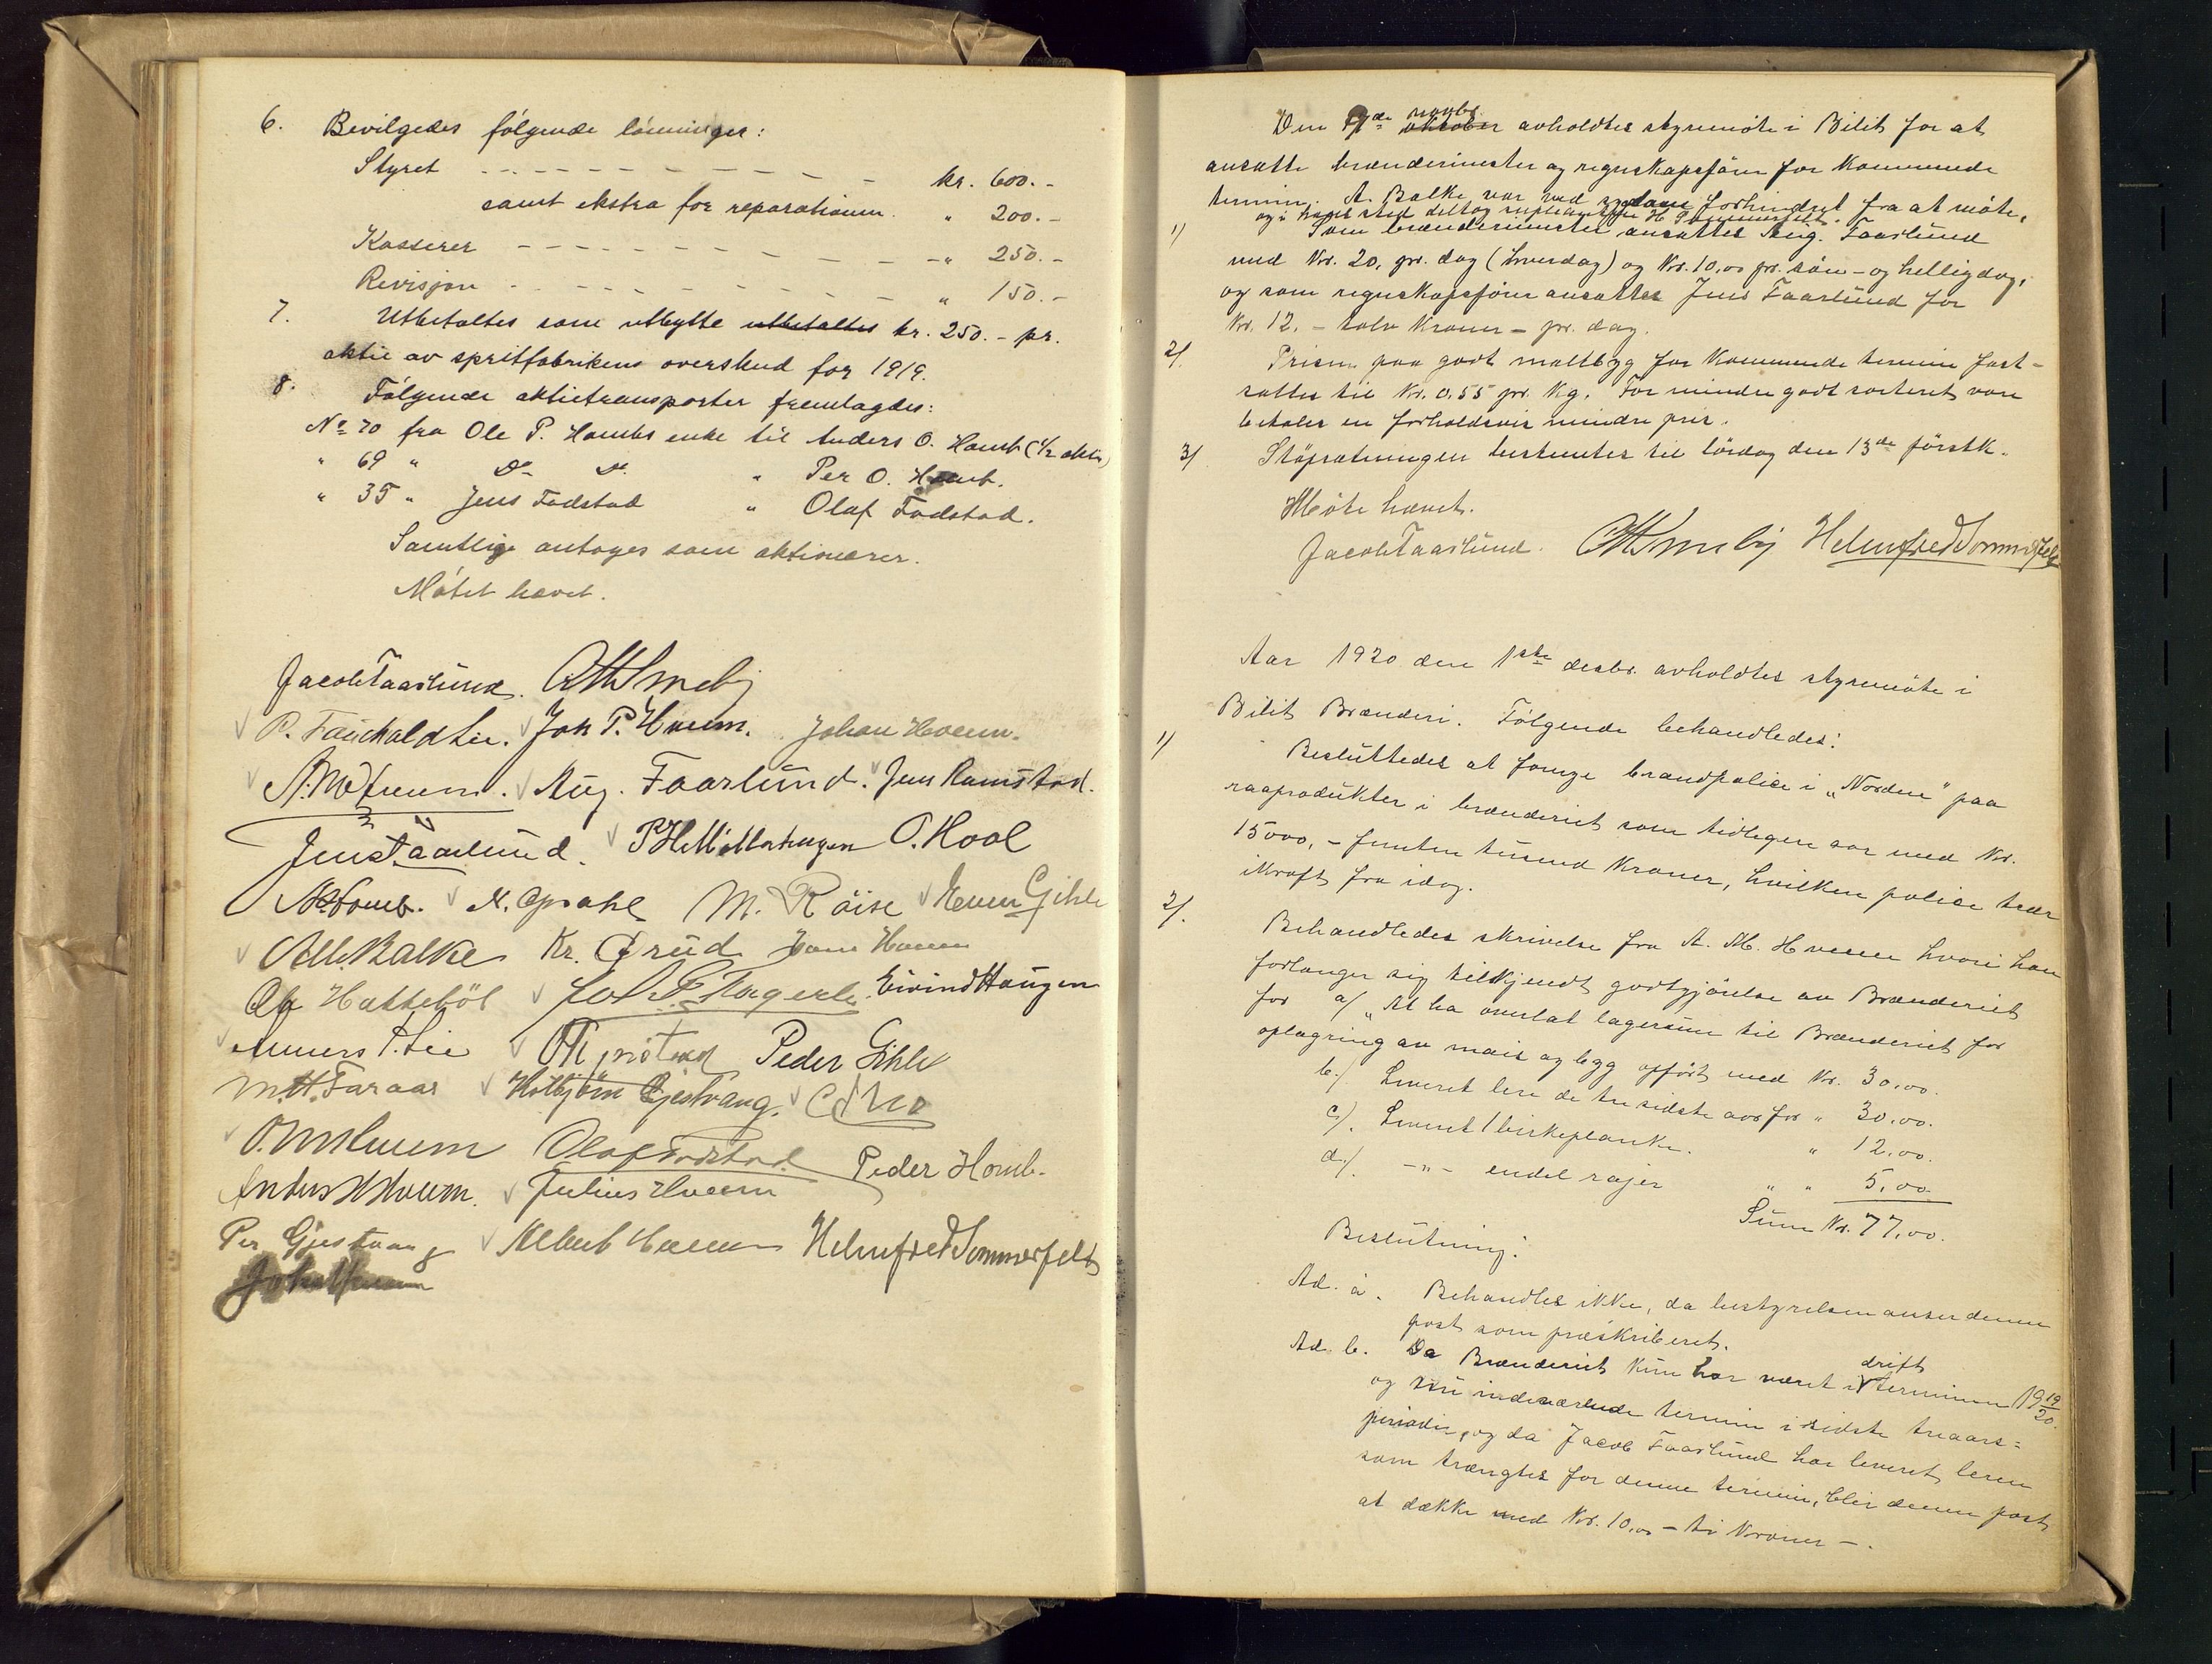 6. Bevilgedes følgende lønninger:
Styret - - - - - - - - - - kr. 600.-
samt ekstra for reparationer. " 200.-
Kasserer - - - - - - - - -" 250.-
Revisjon - - - - - - - - - " 150.-
7. Utbetaltes som utbytte utbetaltes kr. 250.- pr.
aktie av spritfabrikens overskud for 1919.
8. Følgende aktietransporter fremlagdes:
No 70 fra Ole P. Hombs enke til Anders O. Homb (1/2 aktie)
" 69 " Do Do " Per O. Homb.
" 35 " Jens Fodstad " Olaf Fodstad.
Samtlige antoges som aktionærer.
Møtet hævet.
Jacob Faarlund. O M Smeby
P. Fauchald Lie. Joh P. Hveem. Johan Hveem.
A. M. Hveem. Aug. Faarlund. Jens Ramstad.
Jens Faarlund. P. H. O. Hool
Homb. M. Røise Even Gihle
Balke Kr. Grud Hans Hveem
Hatteböl Eivind Haugen
Anners P. Lie Peder Gihle
M. H. Faraas Gjestvang.
Hveem Olaf Fodstad. Peder Homb.
Anders Hveem. Julius Hveem
Per Gjestvang Albert Hveem Helmfred Sommerfelt
Joh Hveem
Den 9de novbr. oktober avholdtes styremøte i Bilit for at
ansætte brænderimester og regnskapsfører for kommende
termin. A. Balke var ved sygdom forhindret fra at møte,
og i hans sted deltog suppleanten H. Sommerfelt.
1) Som brænderimester ansattes Aug. Faarlund
med Kr. 20, pr. dag (hverdag) og Kr. 10,00 pr. søn- og helligdag,
og som regnskapsfører ansattes Jens Faarlund for
Kr. 12. - tolv Kroner - pr. dag.
2). Prisen paa godt maltbyg for kommende termin fast-
sattes til Kr. 0,55 pr. Kg. For mindre godt sorteret vare
betales en forholdsvis mindre pris.
3) Støpsætningen bestemtes til lørdag den 13de førstk.
Møte hævet.
Jacob Faarlund. O M Smeby Helmfred Sommerfelt
Aar 1920 den 1ste desbr. avholdtes styremøte i
Bilit Brænderi. Følgende behandledes:
1) Besluttedes at fornye brandpolice i „Norden" paa
raaprodukter i brænderiet som tidligere var med Kr.
15000, - femten tusend Kroner, hvilken police træer
ikraft fra idag.
2). Behandledes skrivelse fra A. M. Hveem hvori han
forlanger sig tilkjendt godtgjørelse av Brænderiet
for a) „At ha overlat lagerrum til Brænderiet for
oplagring av mais og bygg opført med Kr. 30,00.
b.) Leveret lere de tre sidste aar for " 30,00.
c). Leveret 1 birkeplanke. " 12,00.
d.). -"- endel rajer " " 5,00
Sum Kr. 77,00.
Beslutning:
Ad. a. Behandles ikke, da bestyrelsen anser denne
post som præskriberet.
Ad. b. Da Brænderiet kun har været i drift terminen 1919/20.
og nu indeværende termin i sidste treaars=
periode, og da Jacob Faarlund har leveret leren
som trængtes for denne termin, blir denne post
at dække med Kr. 10,00 - ti Kroner -.